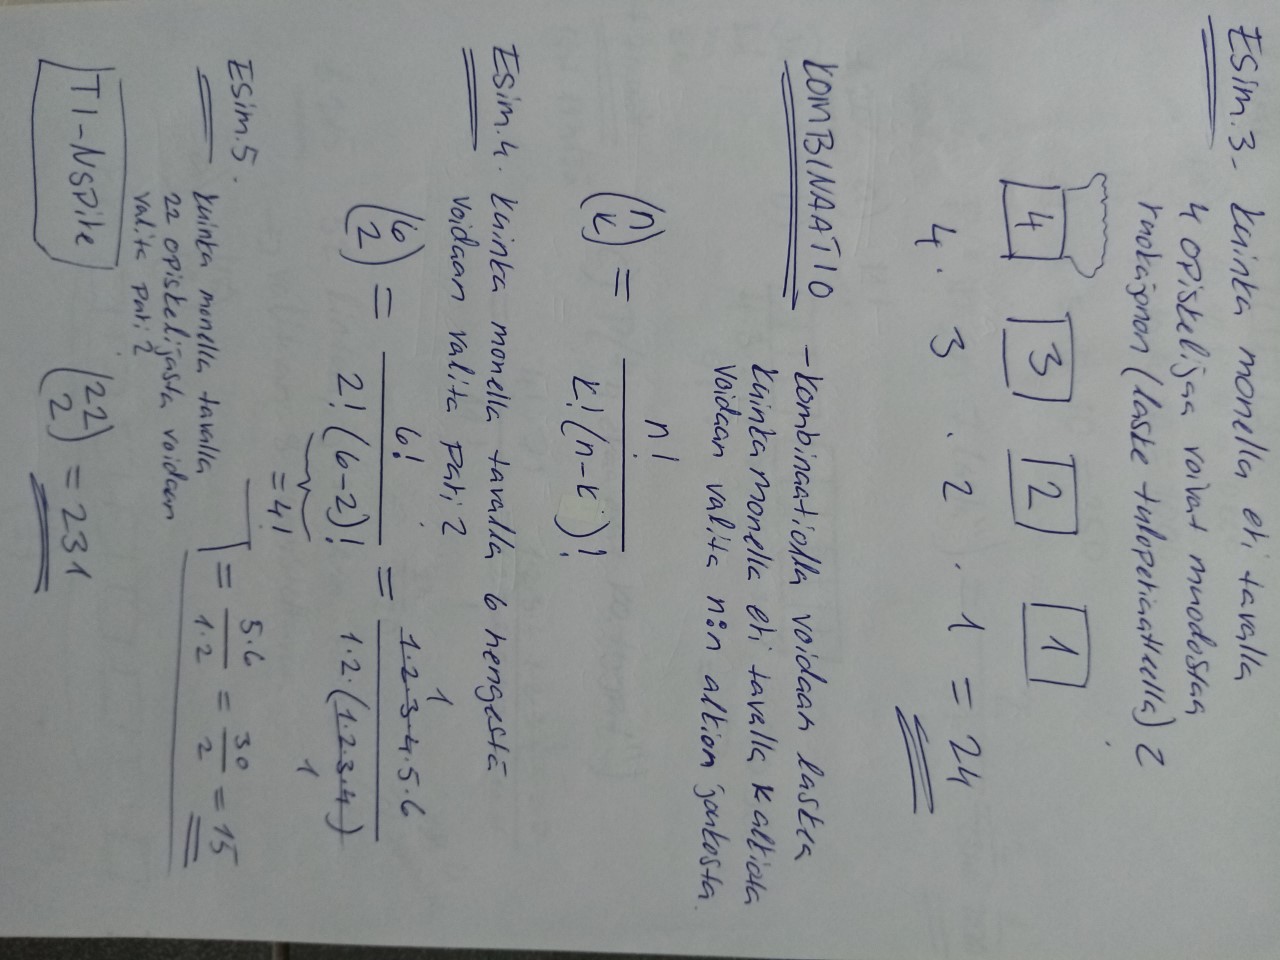 Esim.3. Kuinka monella eri tavalla
4 opiskelijaa voivat muodostaa
ruokajonon (laske tuloperiaatteella)?
4 3 2 1
4 · 3 · 2 · 1 = 24
KOMBINAATIO - kombinaatiolla voidaan laskea
kuinka monella eri tavalla k alkiota
voidaan valita n:n alkion joukosta.
(n k) = n! / k!(n-k)!
Esim.4. Kuinka monella tavalla 6 hengestä
voidaan valita pari?
(6 2) = 6! / 2!(6-2)! = 1·2·3·4·5·6 / 1·2·(1·2·3·4)
1
1
= 4!
= 5·6 / 1·2 = 30 / 2 = 15
Esim.5. Kuinka monella tavalla
22 opiskelijasta voidaan
valita pari?
TI-Nspire (22 2) = 231